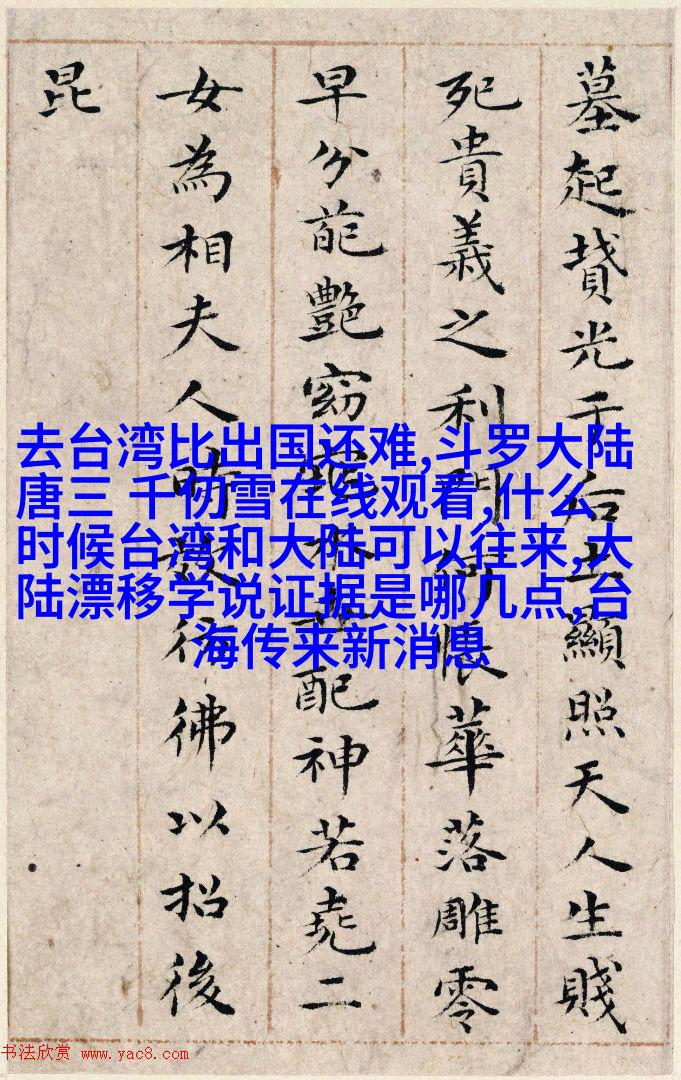 墓起墳光于后土顯照天人生賤
死貴義之利門何悵華落雕零
早分葩艷窈窕永世配神若堯二
女為相夫人時效彷彿以招後
昆
去台湾比出国还难,斗罗大陆
唐三 千仞雪在线观看,什么
时候台湾和大陆可以往来,大
陆漂移学说证据是哪几点,台
海传来新消息
书法欣赏 www.yac8.com